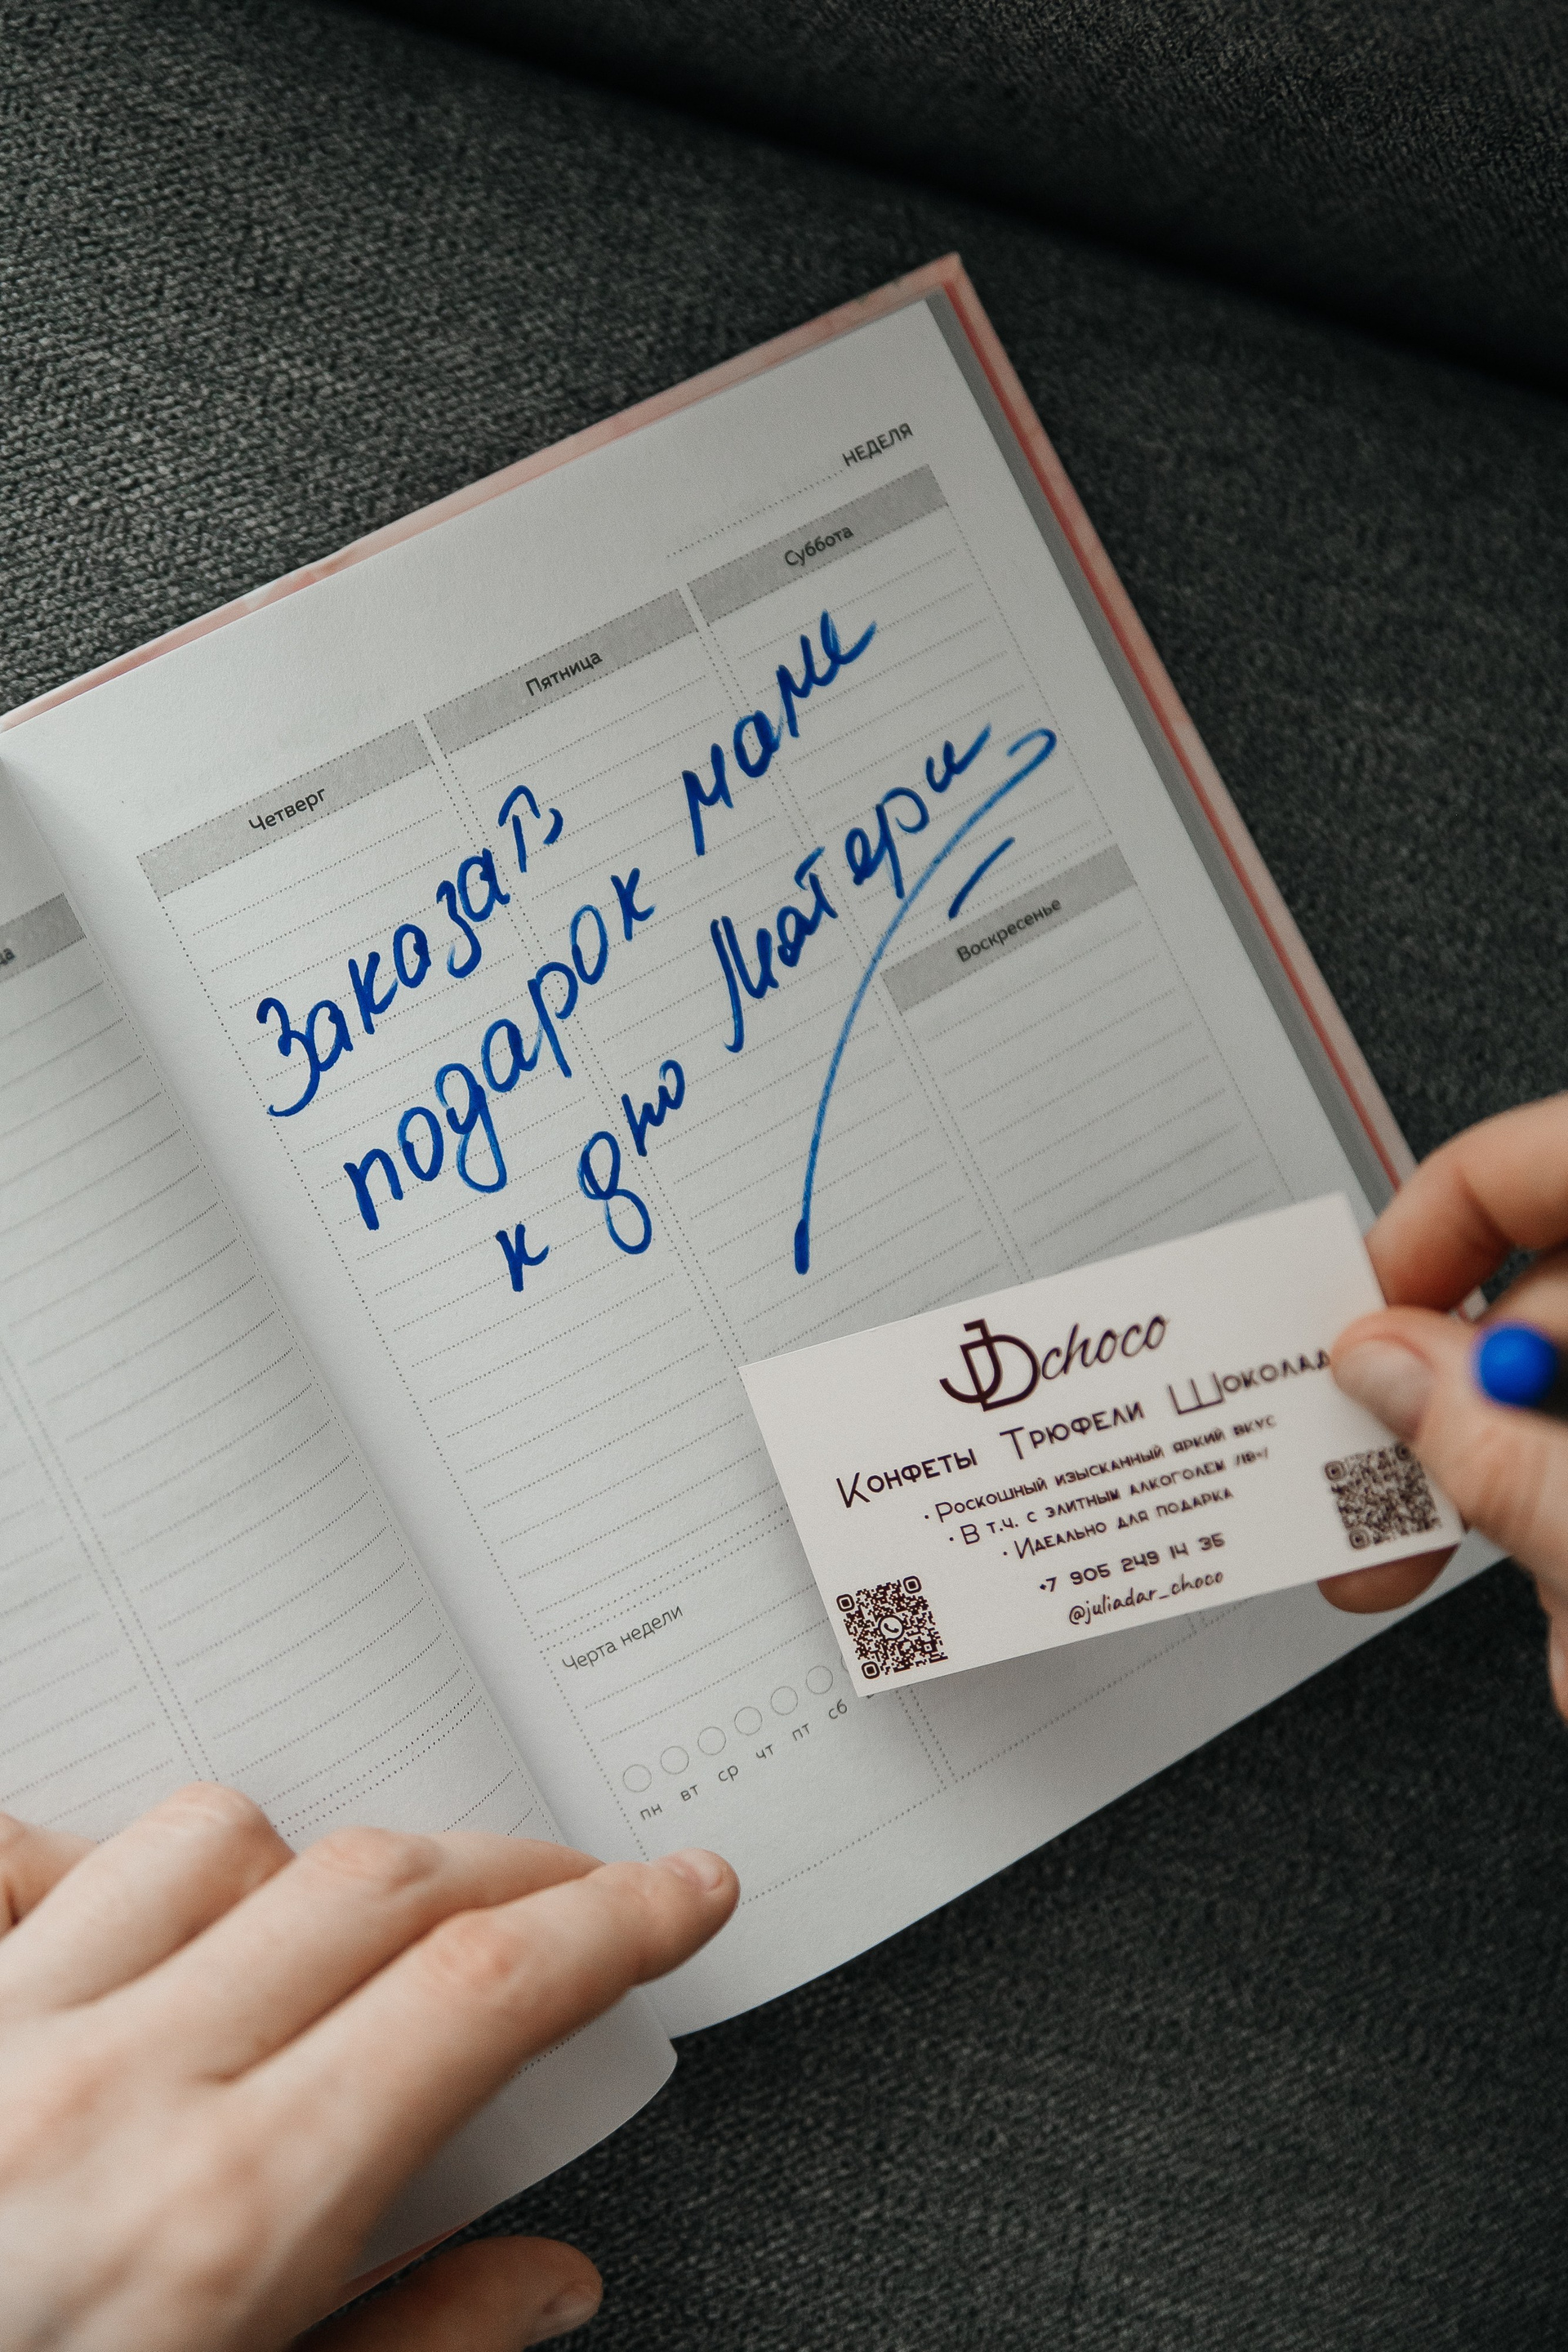 НЕДЕЛЯ
Четверг
Пятница
Суббота
Заказать
подарок маме
к дню Матери
Воскресенье
Черта недели
пн вт ср чт пт сб
JDchoco
Конфеты Трюфели Шоколад
· Роскошный изысканный яркий вкус
· В т.ч. с элитным алкоголем /18+/
· Идеально для подарка
+7 905 249 14 35
@juliadar_choco